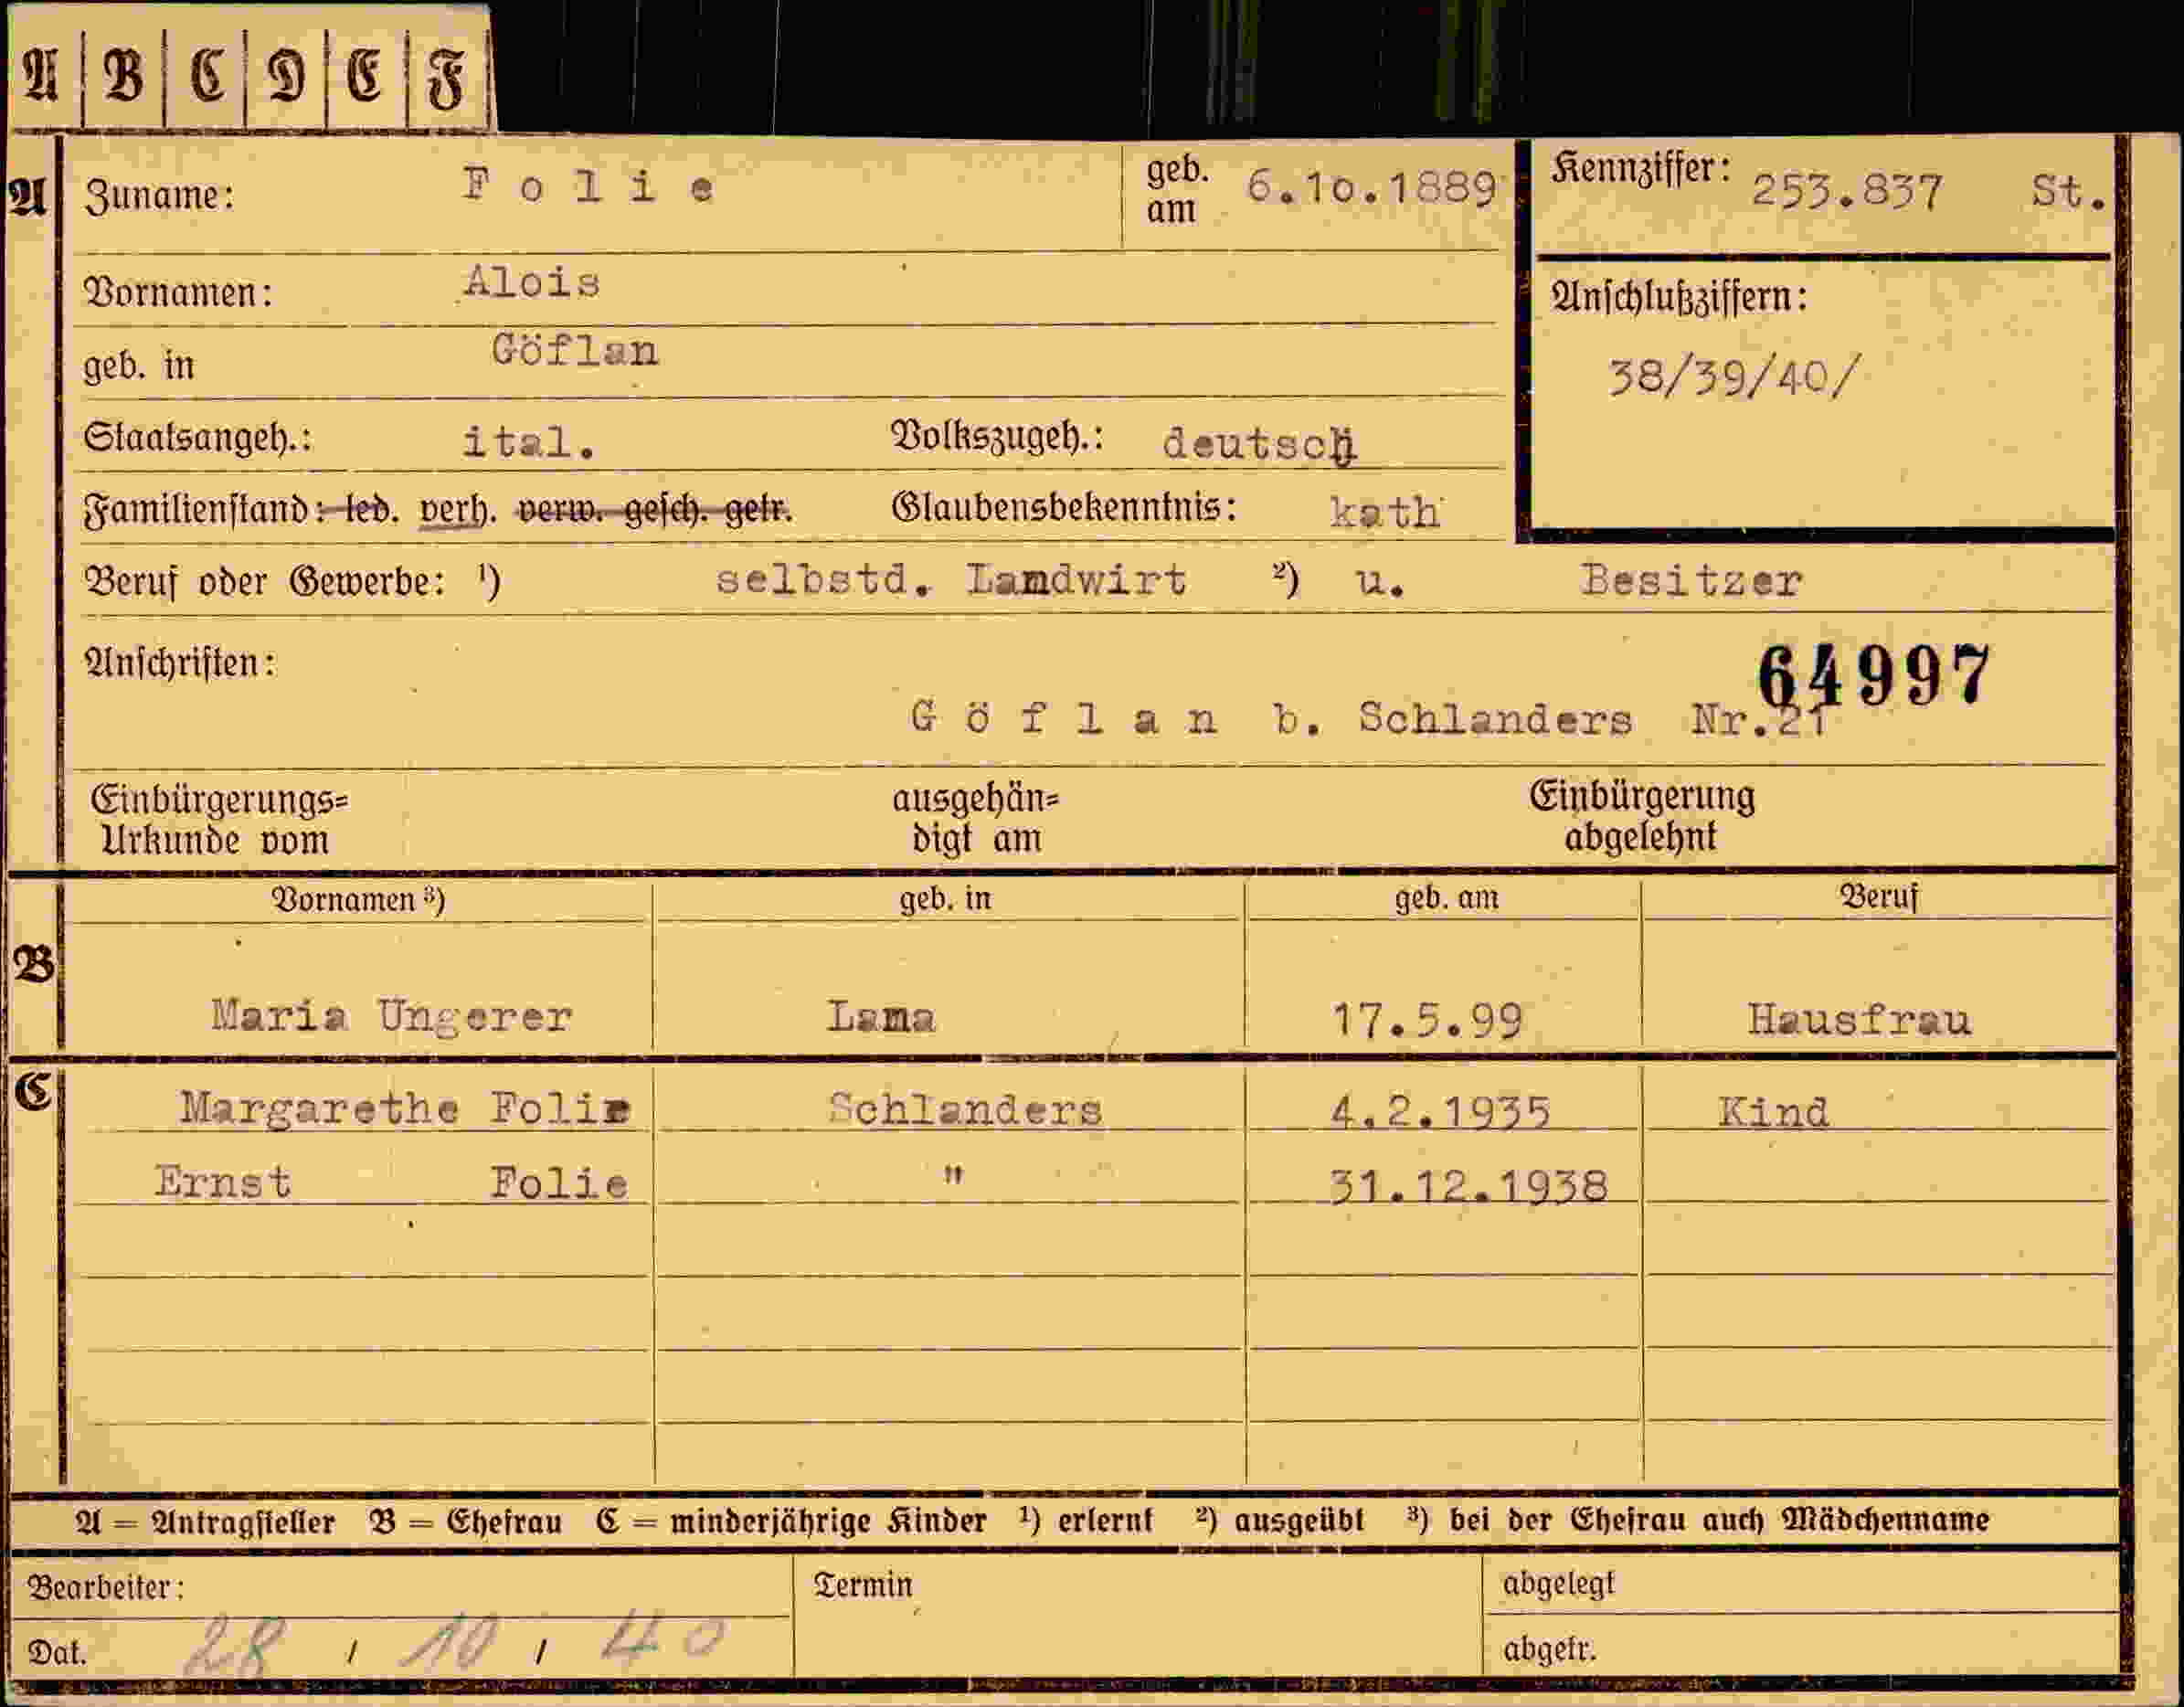 A B C D E F
A Zuname: Folie geb. am 6.10.1889 Kennziffer: 253.837 St.
Vornamen: Alois
Anschlußziffern:
geb. in Göflan
38/39/40/
Staatsangeh.: ital. Volkszugeh.: deutsch
Familienstand: led. verh. verw. gesch. getr. Glaubensbekenntnis: kath
Beruf oder Gewerbe: ¹) selbstd. Landwirt ²) u. Besitzer
Anschriften:
64997
Göflan b. Schlanders Nr.21
Einbürgerungs= ausgehän= Einbürgerung
Urkunde vom digt am abgelehnt
Vornamen ³) geb. in geb. am Beruf
B
Maria Ungerer Lana 17.5.99 Hausfrau
C Margarethe Folie Schlanders 4.2.1935 Kind
Ernst Folie " 31.12.1938
A = Antragsteller B = Ehefrau C = minderjährige Kinder ¹) erlernt ²) ausgeübt ³) bei der Ehefrau auch Mädchenname
Bearbeiter: Termin abgelegt
Dat. 28 / 10 / 40 abgetr.